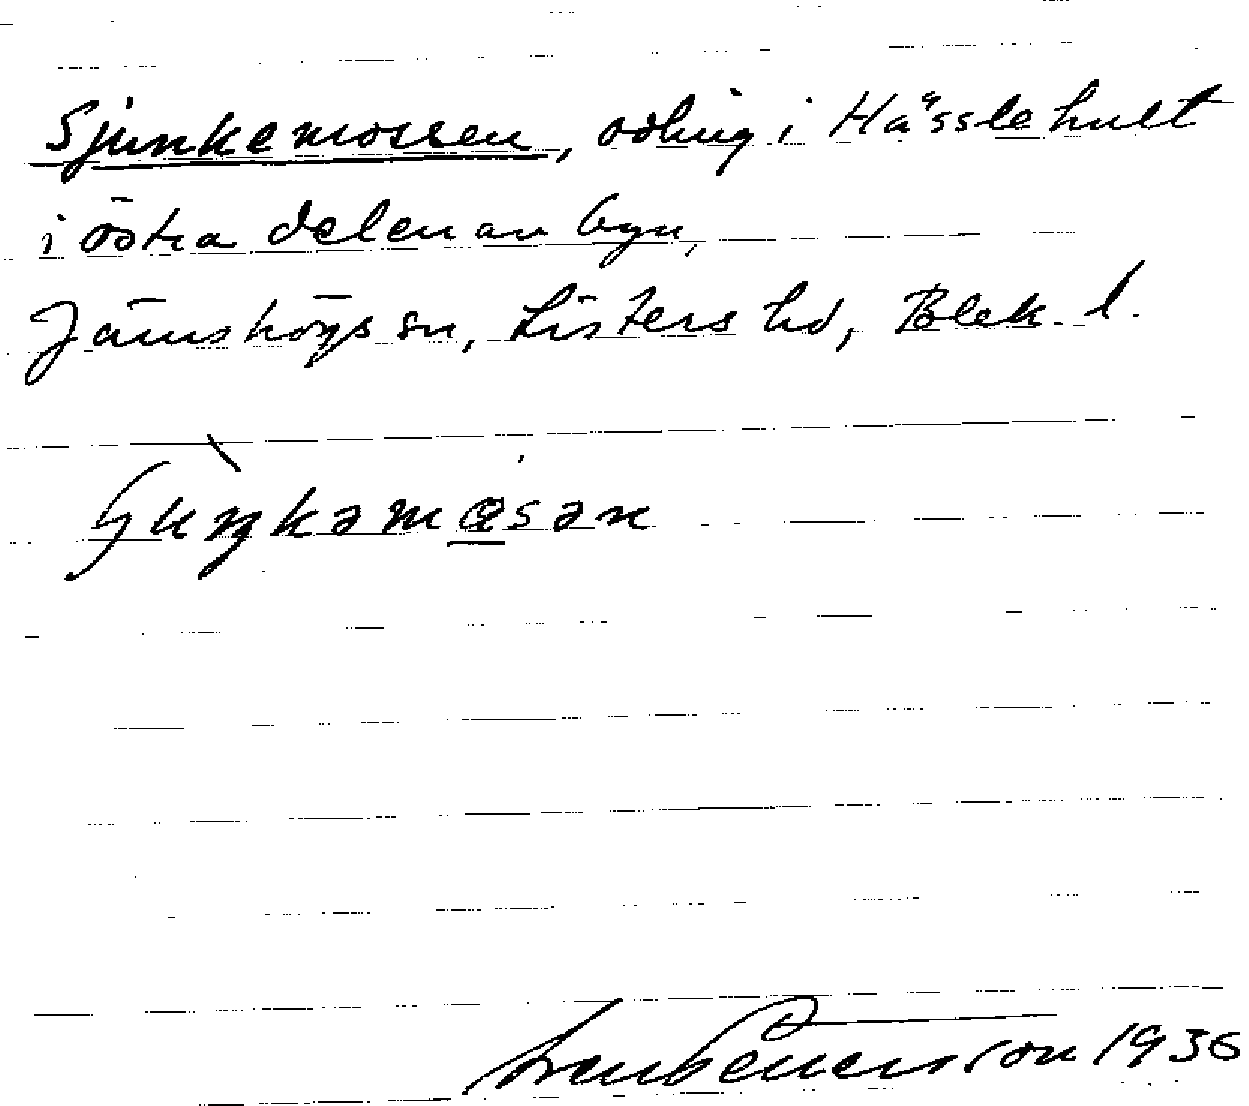 Sjunkemossen, odling i Hässlehult
i östra delen av byn,
Jämshögs sn, Listers hd, Blek. l.
Sven Benson 1936